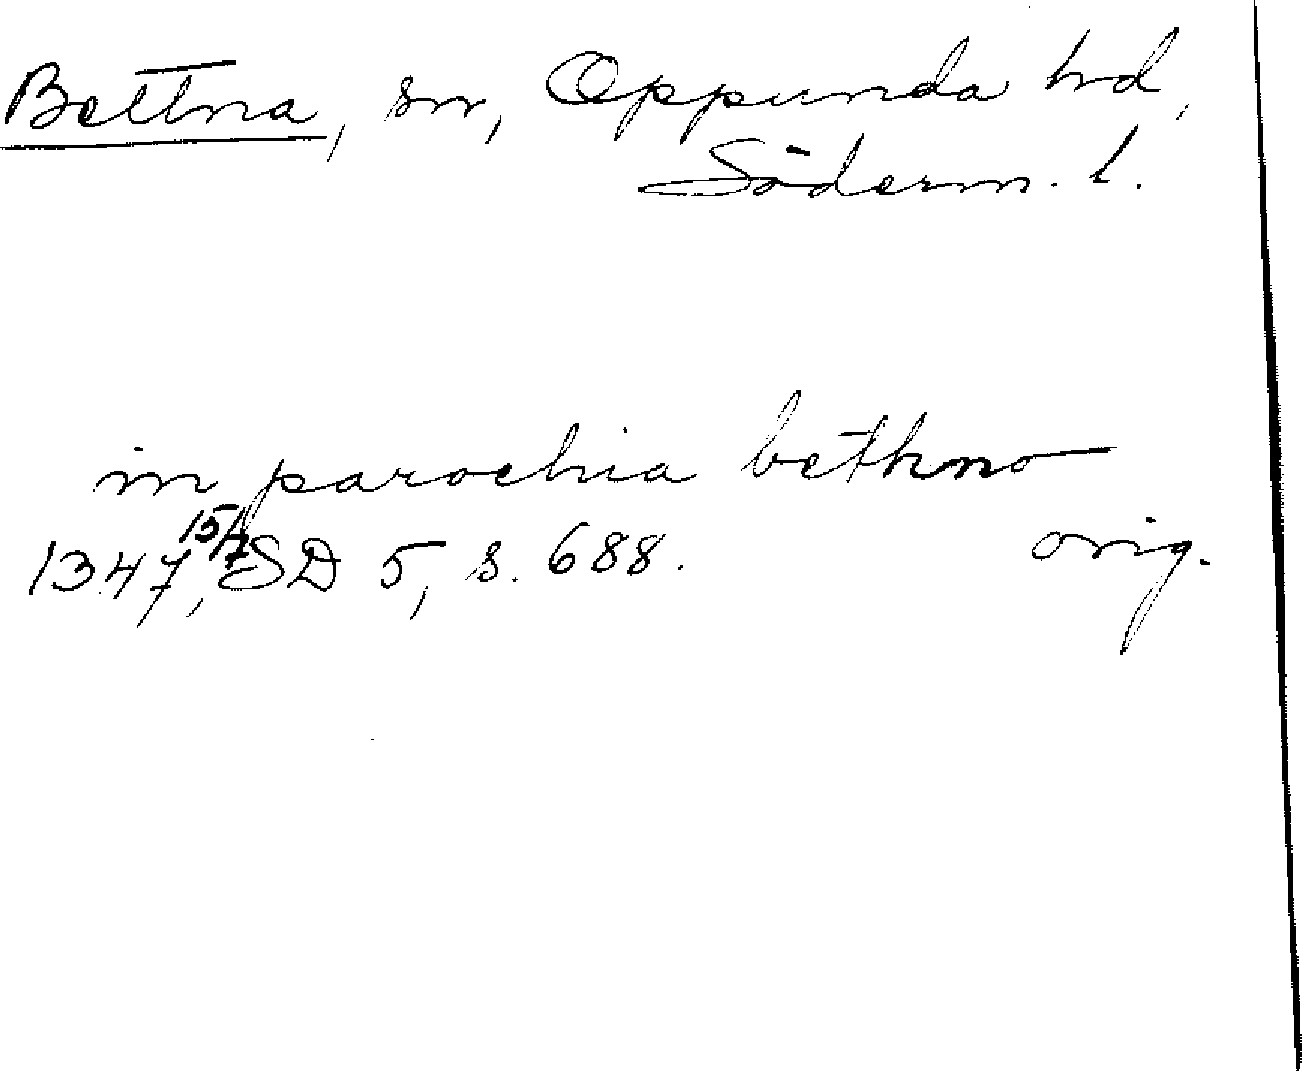 Bettna, sn, Oppunda hd,
Söderm. l.
in parochia bethno
1347 15/7, SD 5, s. 688. orig.